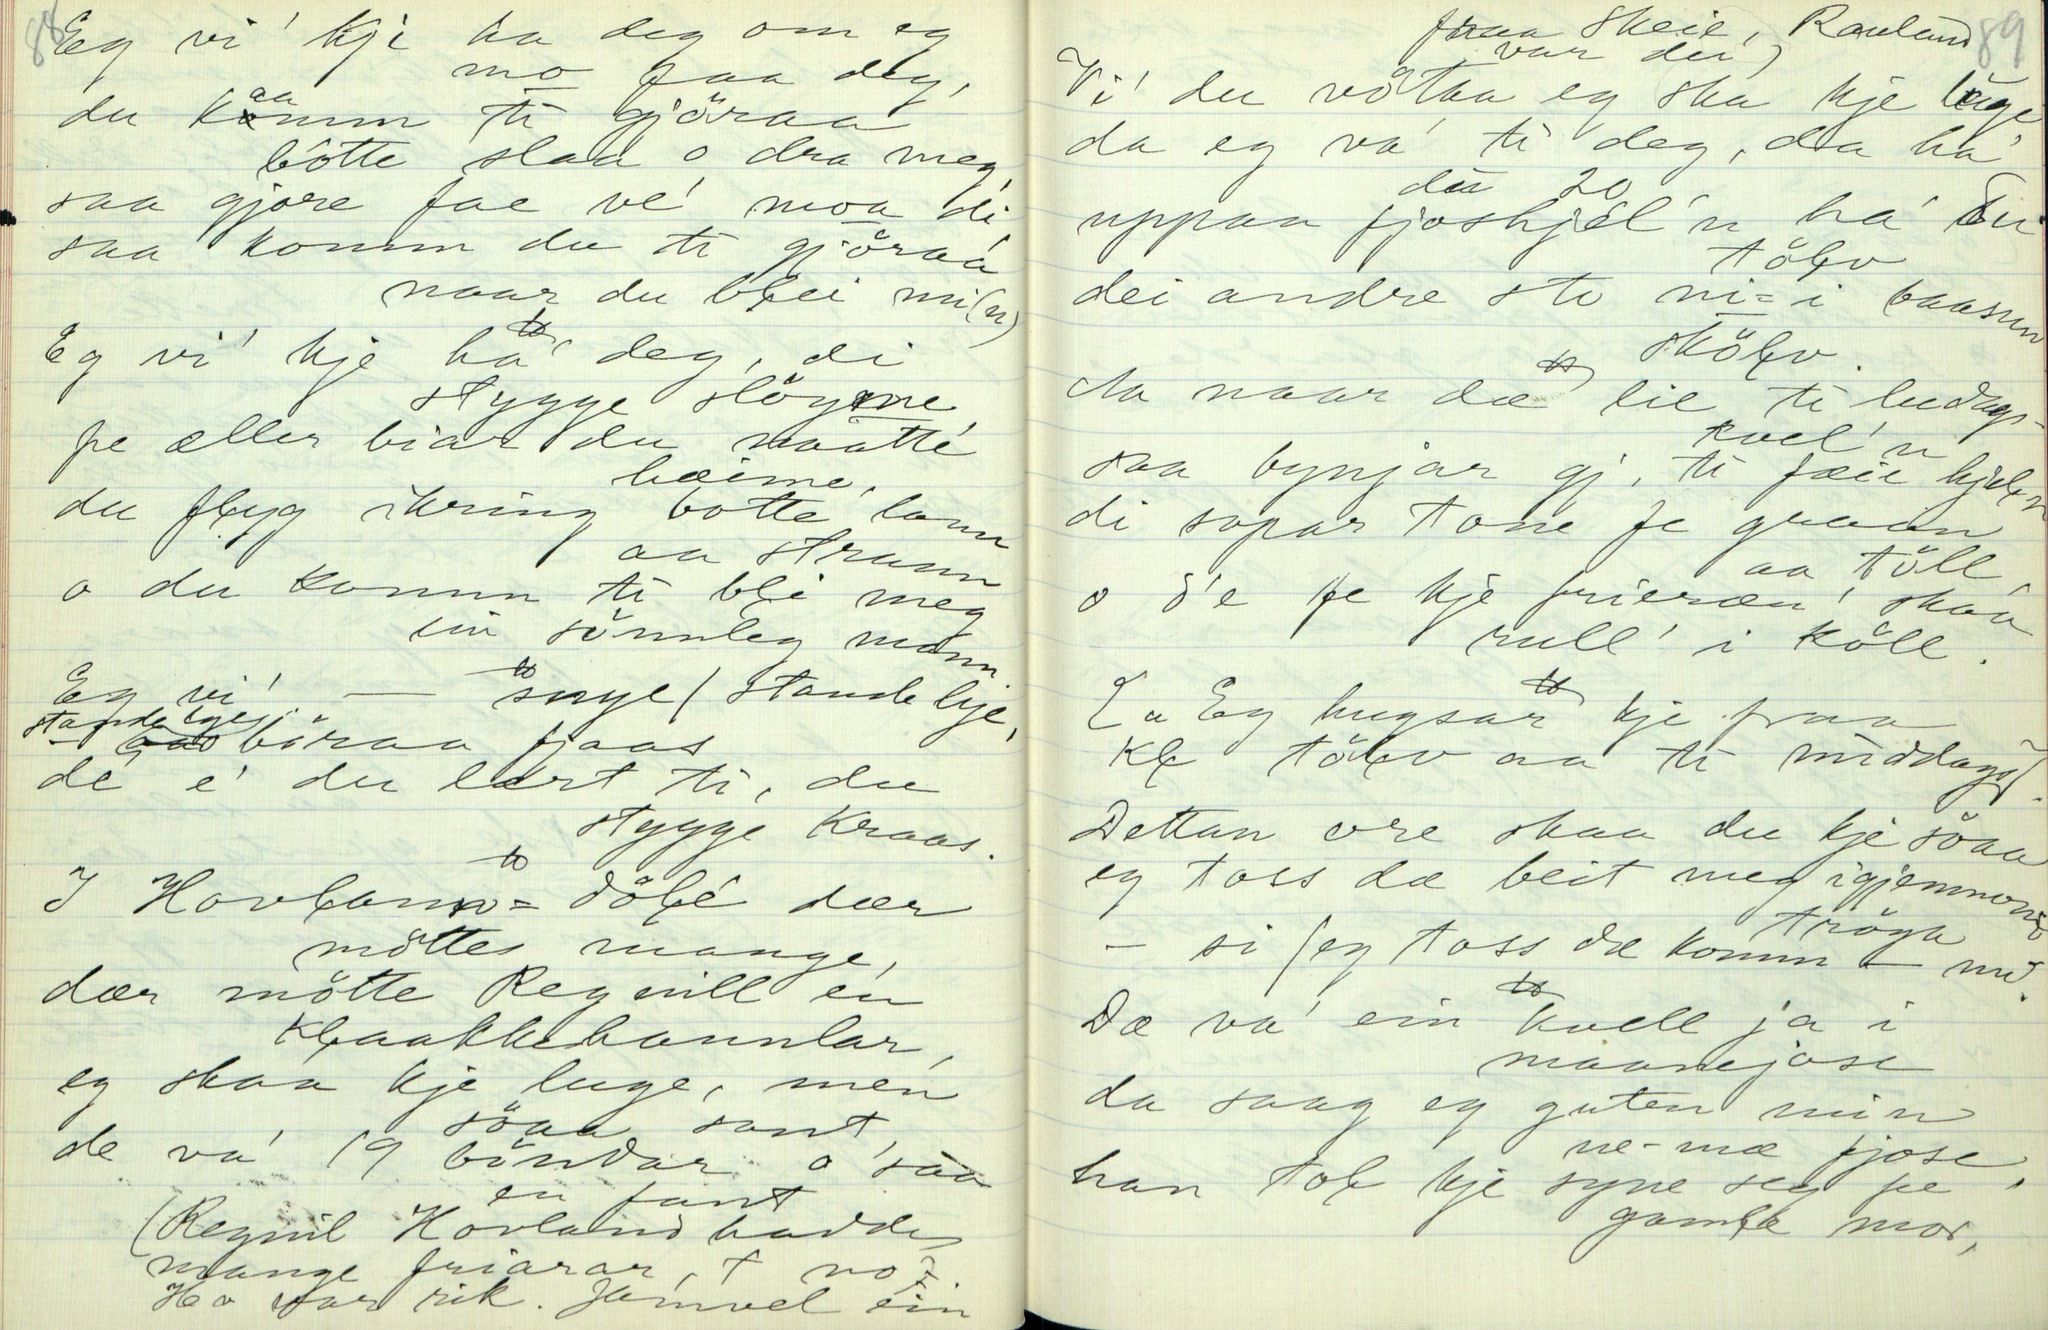 88
Eg vi' kje ha deg om eg
mo faa deg,
du kaamm ti gjöraa
bötte slaa o dra meg,
saa gjöre fae ve' moa di,
saa komm du ti gjöraa
naar du blei mi(n)
Eg vi' kje ha' deg, di
stygge slöyme,
fe æller biar du naatte'
hæime,
du flyg ikring botte' lann
aa strann
o du komm ti bli meg
ein sönnleg mann
Eg vi' — snye / stande kje,
— böraa fjaas
de' e' du lært ti, du
stygge Kraas.
I Hovlann = döle' dær
möttes mange,
dær mötte Regnill en
Klaakkehannlar,
eg skaa kje luge, men
söaa sant,
de va' 19 böndar o' saa
en fant
(Regnil Hovland hadde
mange friarar, + no?
Ho var rik. Jamvel ein
89
fraa Skeie, Rauland
var dei)
Vi' du vötta eg ska kje luge,
da eg va' ti deg, da ha'
du 20
uppaa fjoshjel'n ha' du
tölv
dei andre sto ni = i baasen
skölv.
da naar dæ lie ti ludags-
kvel'n
saa bynjar gj. ti fæie hjel'n
di sopar tone fe graan
aa töll,
o d'e fe kje frieræn' skaa
rull' i köll.
[a Eg hugsar kje fraa
Kl tölv aa ti middags].
Dettan ore skaa du kje söaa
eg toss dæ beit meg igjennom
tröya
— si / eg toss dæ komm — mi.
Dæ va' ein kvell ja i
maanejose
da saag eg guten min
ne-mæ fjose,
han tol kje syne seg fe
gamle mor,